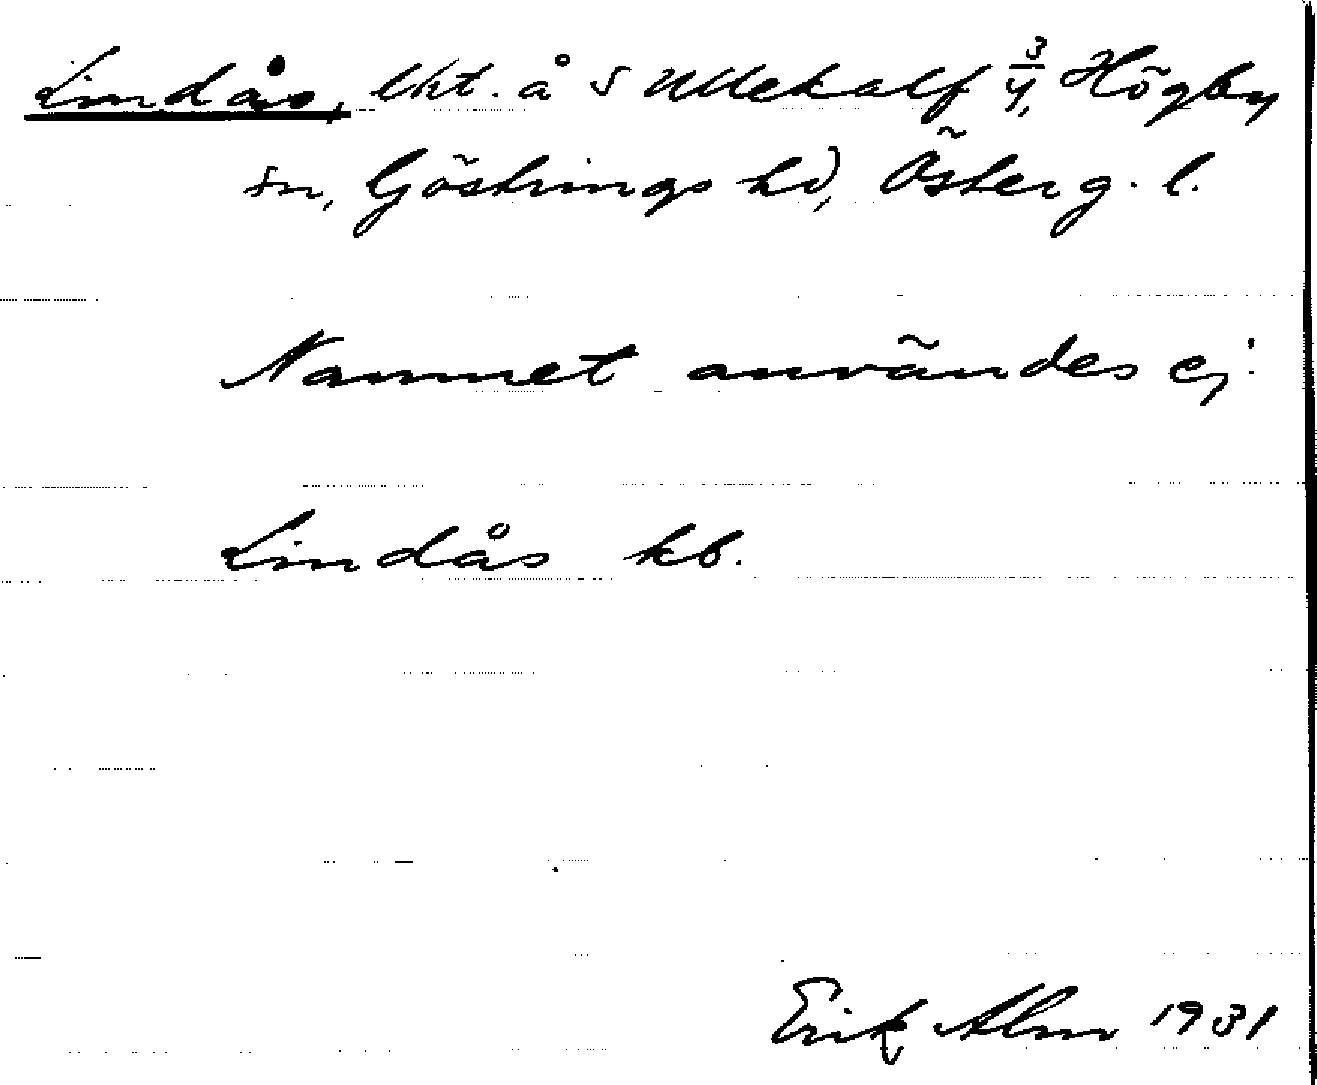 Lindås, lht. å S Ullekalf 3/4, Högby
sn, Göstrings hd, Österg. l.
Namnet användes ej.
Lindås kb.
Erik Alm 1931